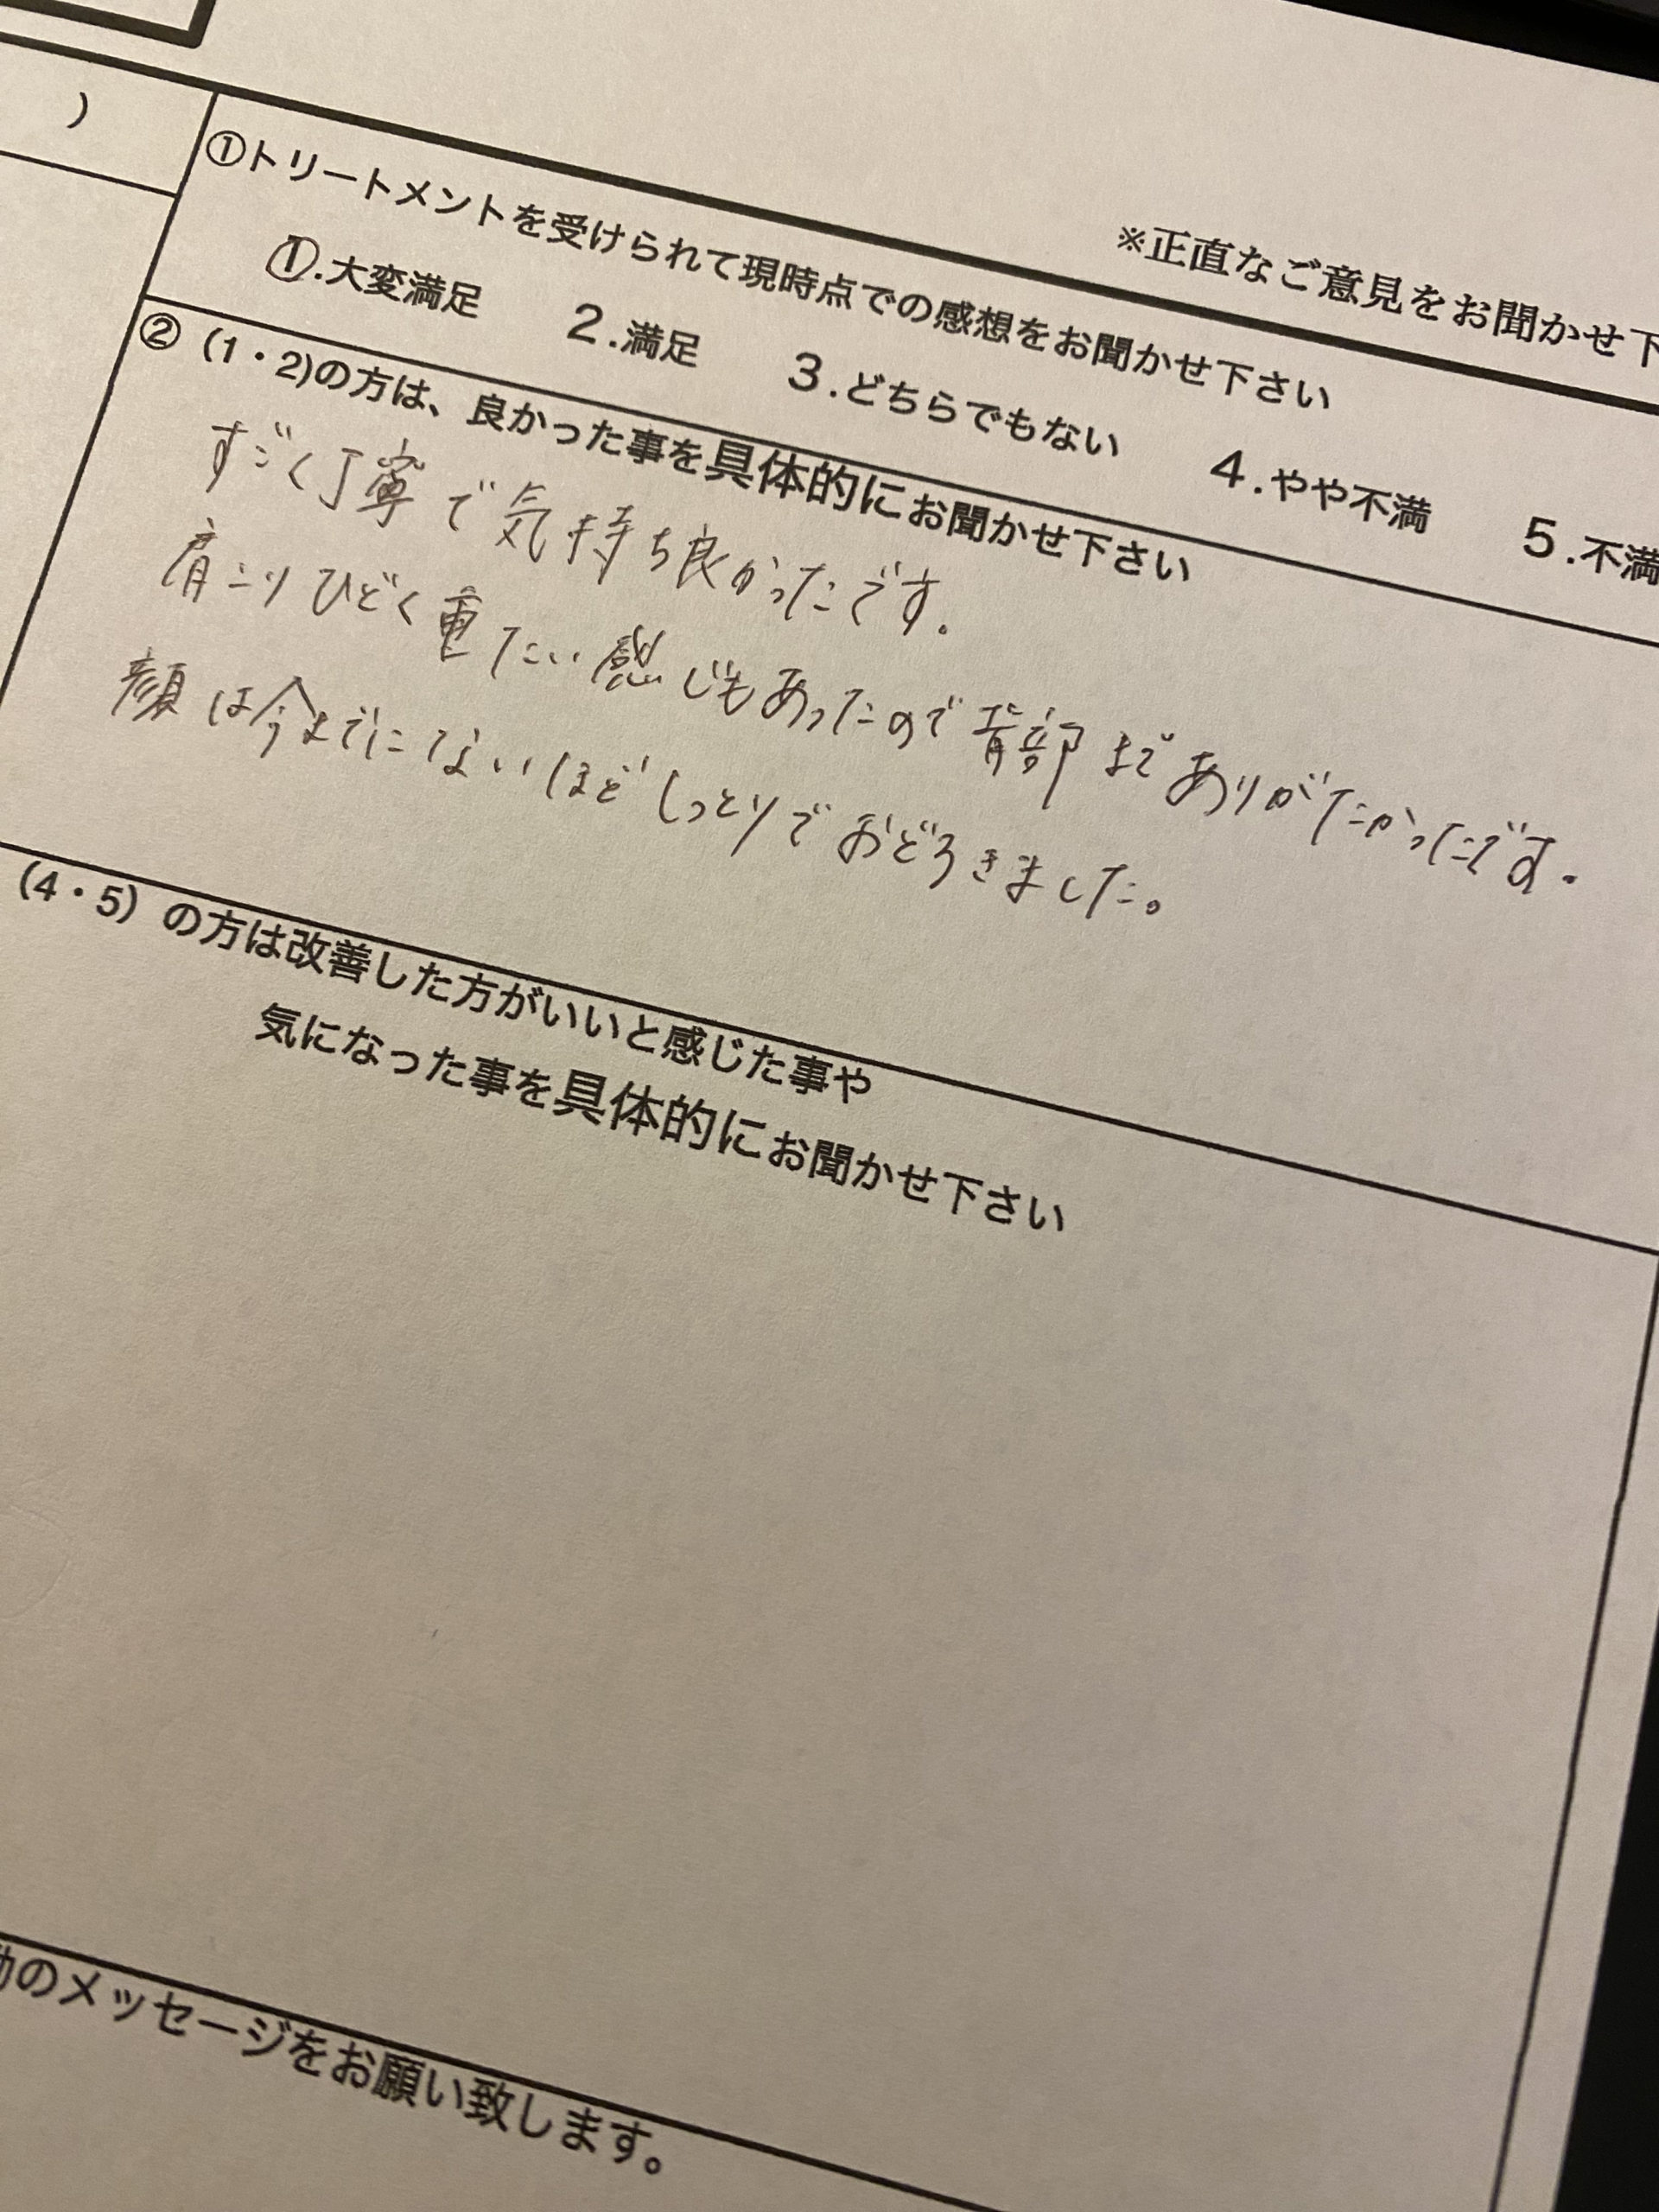 )
※正直なご意見をお聞かせ下
①トリートメントを受けられて現時点での感想をお聞かせ下さい
①.大変満足 2.満足 3.どちらでもない 4.やや不満 5.不満
②（1・2)の方は、良かった事を具体的にお聞かせ下さい
すごく丁寧で気持ち良かったです.
肩こりひどく重たい感じもあったので背部までありがたかったです.
顔は今までにないほどしっとりでおどろきました。
（4・5）の方は改善した方がいいと感じた事や
気になった事を具体的にお聞かせ下さい
のメッセージをお願い致します。